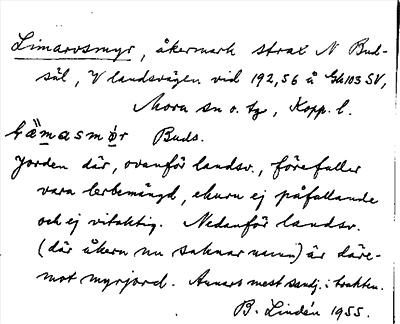 Limarosmyr, åkermark strax N Bud-
säl, V landsvägen vid 192,56 å Gh103 SV,
Mora sn o. tg, Kopp. l.
Buds.
Jorden där, ovanför landsv., förefaller
vara lerbemängd, ehuru ej påfallande
och ej vitaktig. Nedanför landsv.
(där åkern nu saknar namn) är däre-
mot myrjord. Annars mest sandj. i trakten.
B. Lindén 1955.